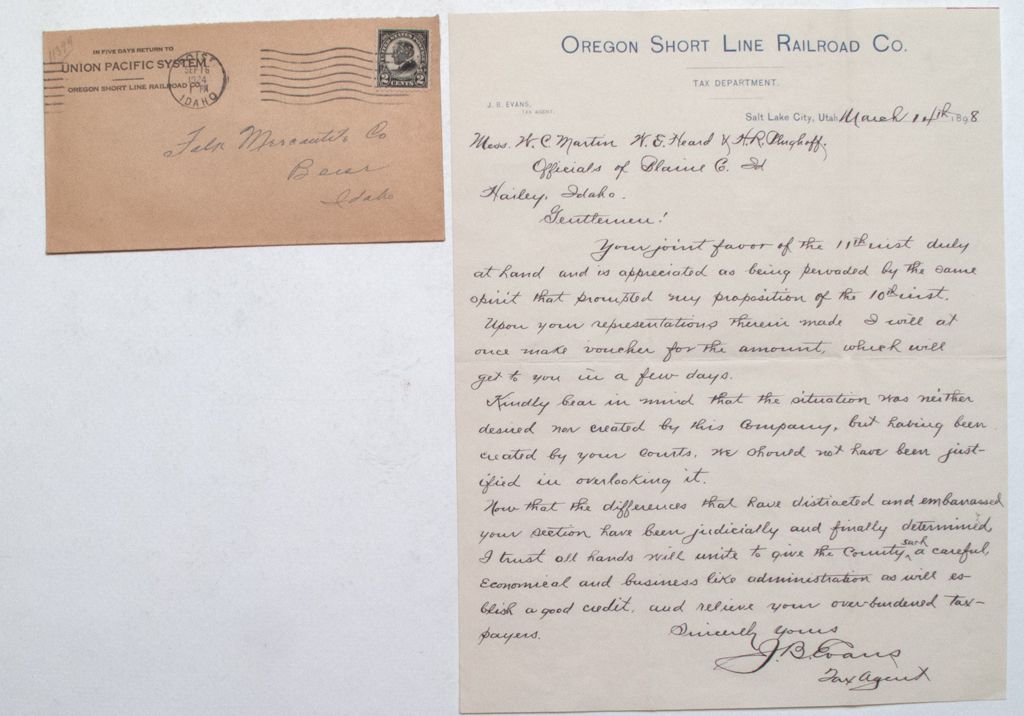 IN FIVE DAYS RETURN TO
UNION PACIFIC SYSTEM
OREGON SHORT LINE RAILROAD CO.
SEP 16
1924
PM
IDAHO
UNITED STATES POSTAGE
2 CENTS 2
Falk Mercantile Co
Boise
Idaho
OREGON SHORT LINE RAILROAD CO.
TAX DEPARTMENT.
J. B. EVANS,
TAX AGENT.
Salt Lake City, Utah, March 14th 1898
Mess. W. C. Martin W. E. Heard & H. R.
Officials of Blaine Co. Id
Hailey, Idaho.
Gentlemen!
Your joint favor of the 11th inst duly
at hand and is appreciated as being pervaded by the same
spirit that prompted my proposition of the 10th inst.
Upon your representations therein made I will at
once make voucher for the amount, which will
get to you in a few days.
Kindly bear in mind that the situation was neither
desired nor created by this Company, but having been
created by your Courts, we should not have been just-
ified in overlooking it.
Now that the differences that have distracted and embarrassed
your section have been judicially and finally determined,
I trust all hands will unite to give the County such a careful,
economical and business like administration as will es-
blish a good credit, and relieve your over-burdened tax-
payers.
Sincerely yours
J. B. Evans
Tax Agent